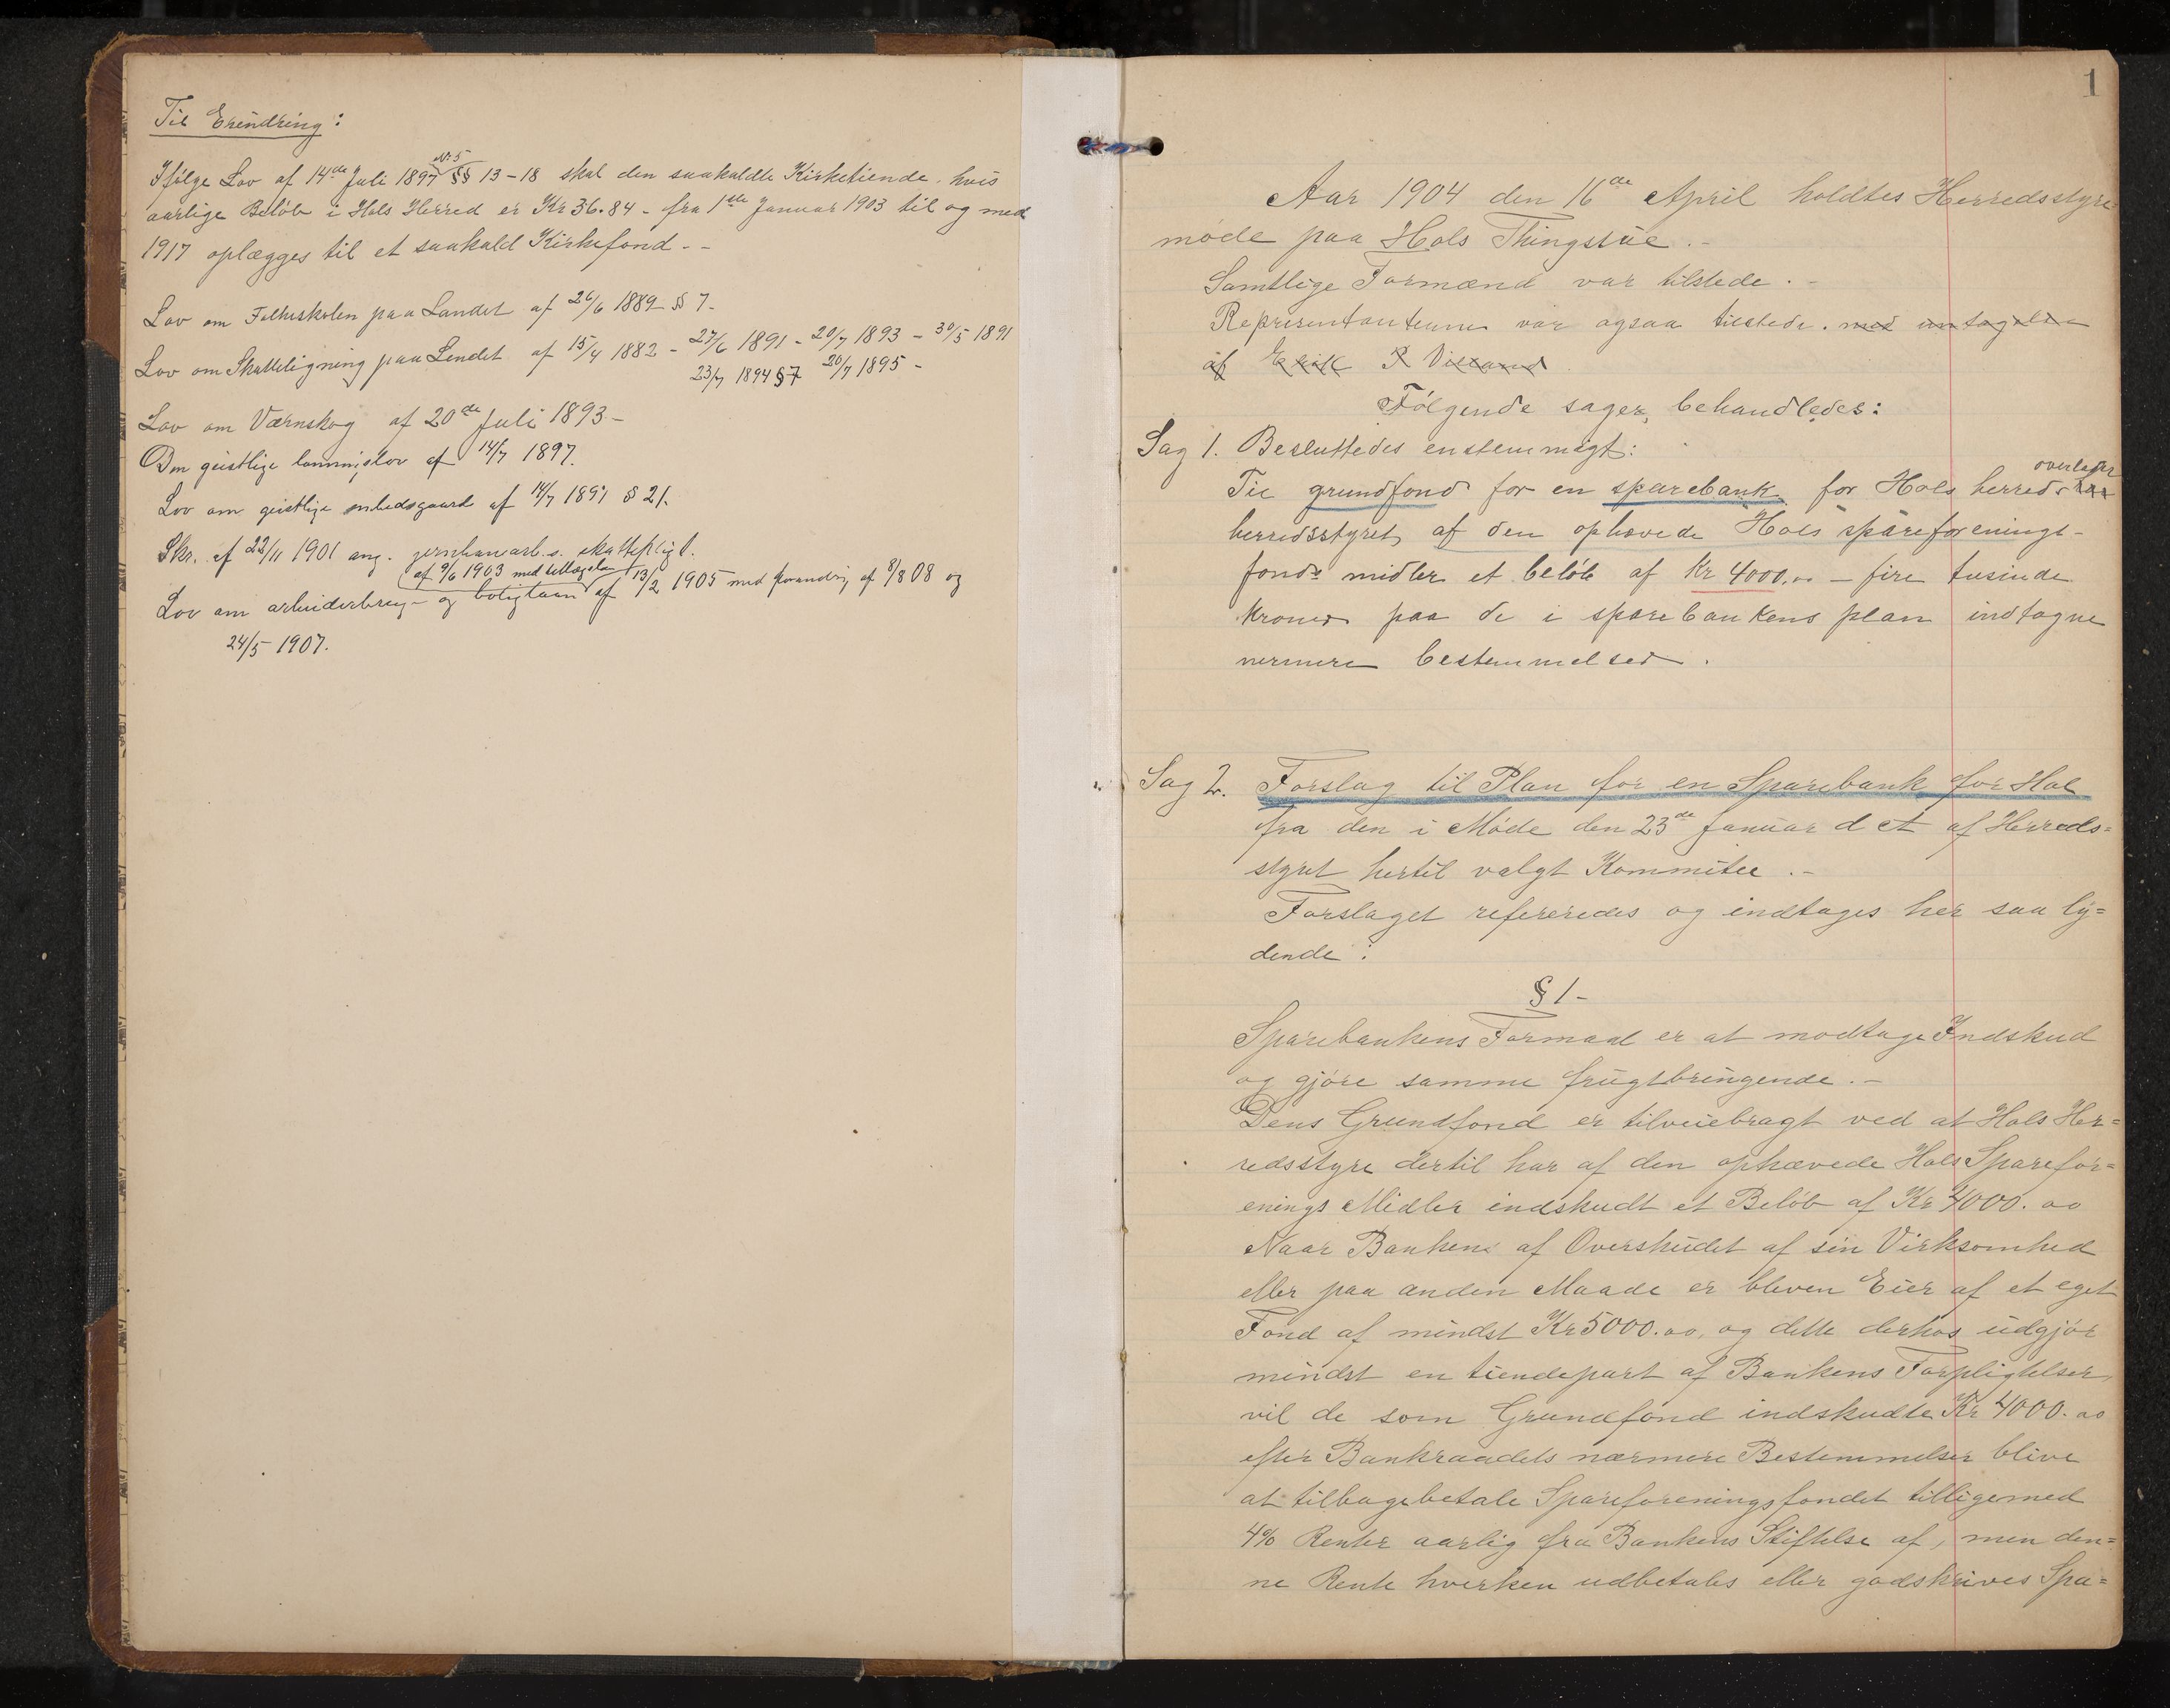 Til Erindring:
Ifølge Lov af 14de Juli 1897 No 5 §§ 13-18 skal den saakaldte Kirketiende, hvis
aarlige Beløb i Hols Herred er Kr 36.84 - fra 1ste Januar 1903 til og med
1917 oplægges til et saakald Kirkefond --
Lov om Folkeskolen paa Landet af 26/6 1889 § 7.
Lov om Skatteligning paa Landet af 15/4 1882 - 27/6 1891 - 20/7 1893 - 30/5 1891
23/7 1894 § 7 20/7 1895 -
Lov om Værnskog af 20de Juli 1893 -
Den geistlige lønningslov af 14/7 1897.
Lov om geistlige embedsgaard af 14/7 1897 § 21.
Skr. af 22/11 1901 ang. jernbanearb.s. skattepligt.
af 9/6 1903 med tillægslov
Lov om arbeiderbrug- og boliglaan af 13/2 1905 med forandrig af 8/8 08 og
24/5 1907.
1
Aar 1904 den 16de April holdtes Herredsstyre
møde paa Hols Thingstue.-
Samtlige Formænd var tilstede.-
Representanterne var ogsaa tilstede. med untagelse
af Eirik R Villand
Følgende sager behandledes:
Sag 1. Besluttedes enstemmigt:
overlader
Til grundfond for en sparebank for Hols herred har
herredsstyret af den ophævede Hols spareforenings-
fonds midler et beløb af Kr 4000.00 - fire tusinde
kroner paa de i sparebankens plan indtagne
nermere bestemmelser.
Sag 2. Forslag til Plan for en Sparebank for Hol
fra den i Møde den 23de Januar d et af Herreds=
styret hertil valgt Kommitee.-
Forslaget refereredes og indtages her saa ly=
dende:
§ 1-
Sparebankens Formaal er at modtage Indskud
og gjøre samme frugtbringende.-
Dens Grundfond er tilveiebragt ved at Hols Her=
redsstyre dertil har af den ophævede Hols Sparefor=
enings Midler indskudt et Beløb af Kr 4000.00
Naar Banken af Overskudet af sin Virksomhed
eller paa anden Maade er bleven Eier af et eget
Fond af mindst Kr 5000.00, og dette derhos udgjør
mindst en tiendepart af Bankens Forpligtelser,
vil de som Grundfond indskudte Kr 4000.00
efter Bankraadets nærmere Bestemmelser blive
at tilbagebetale Spareforeningsfondet tilligemed
4% Renter aarlig fra Bankens Stiftelse af, men den=
ne Rente hverken udbetales eller godskrives Spa=